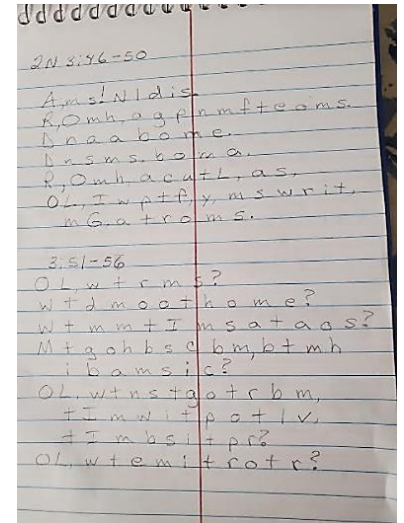 2N 3:46-50
A, m s! N l d i s.
R, O m h, a g p n m f t e o m s.
D n a a b o m e.
D n s m s. b o m a.
R, O m h, a c u t L, a s,
O L, I w p t f, y, m s w r i t,
m G. a t r o m s.
3:51-56
O L, w t r m s?
w t d m o o t h o m e?
W t m m t I m s a t a o s?
M t g o h b s c b m, b t m h
i b a m s i c?
O L, w t n s t g o t r b m,
t I m w i t p o t l v,
t I m b s i t p r?
O L, w t e m i t r o t r?